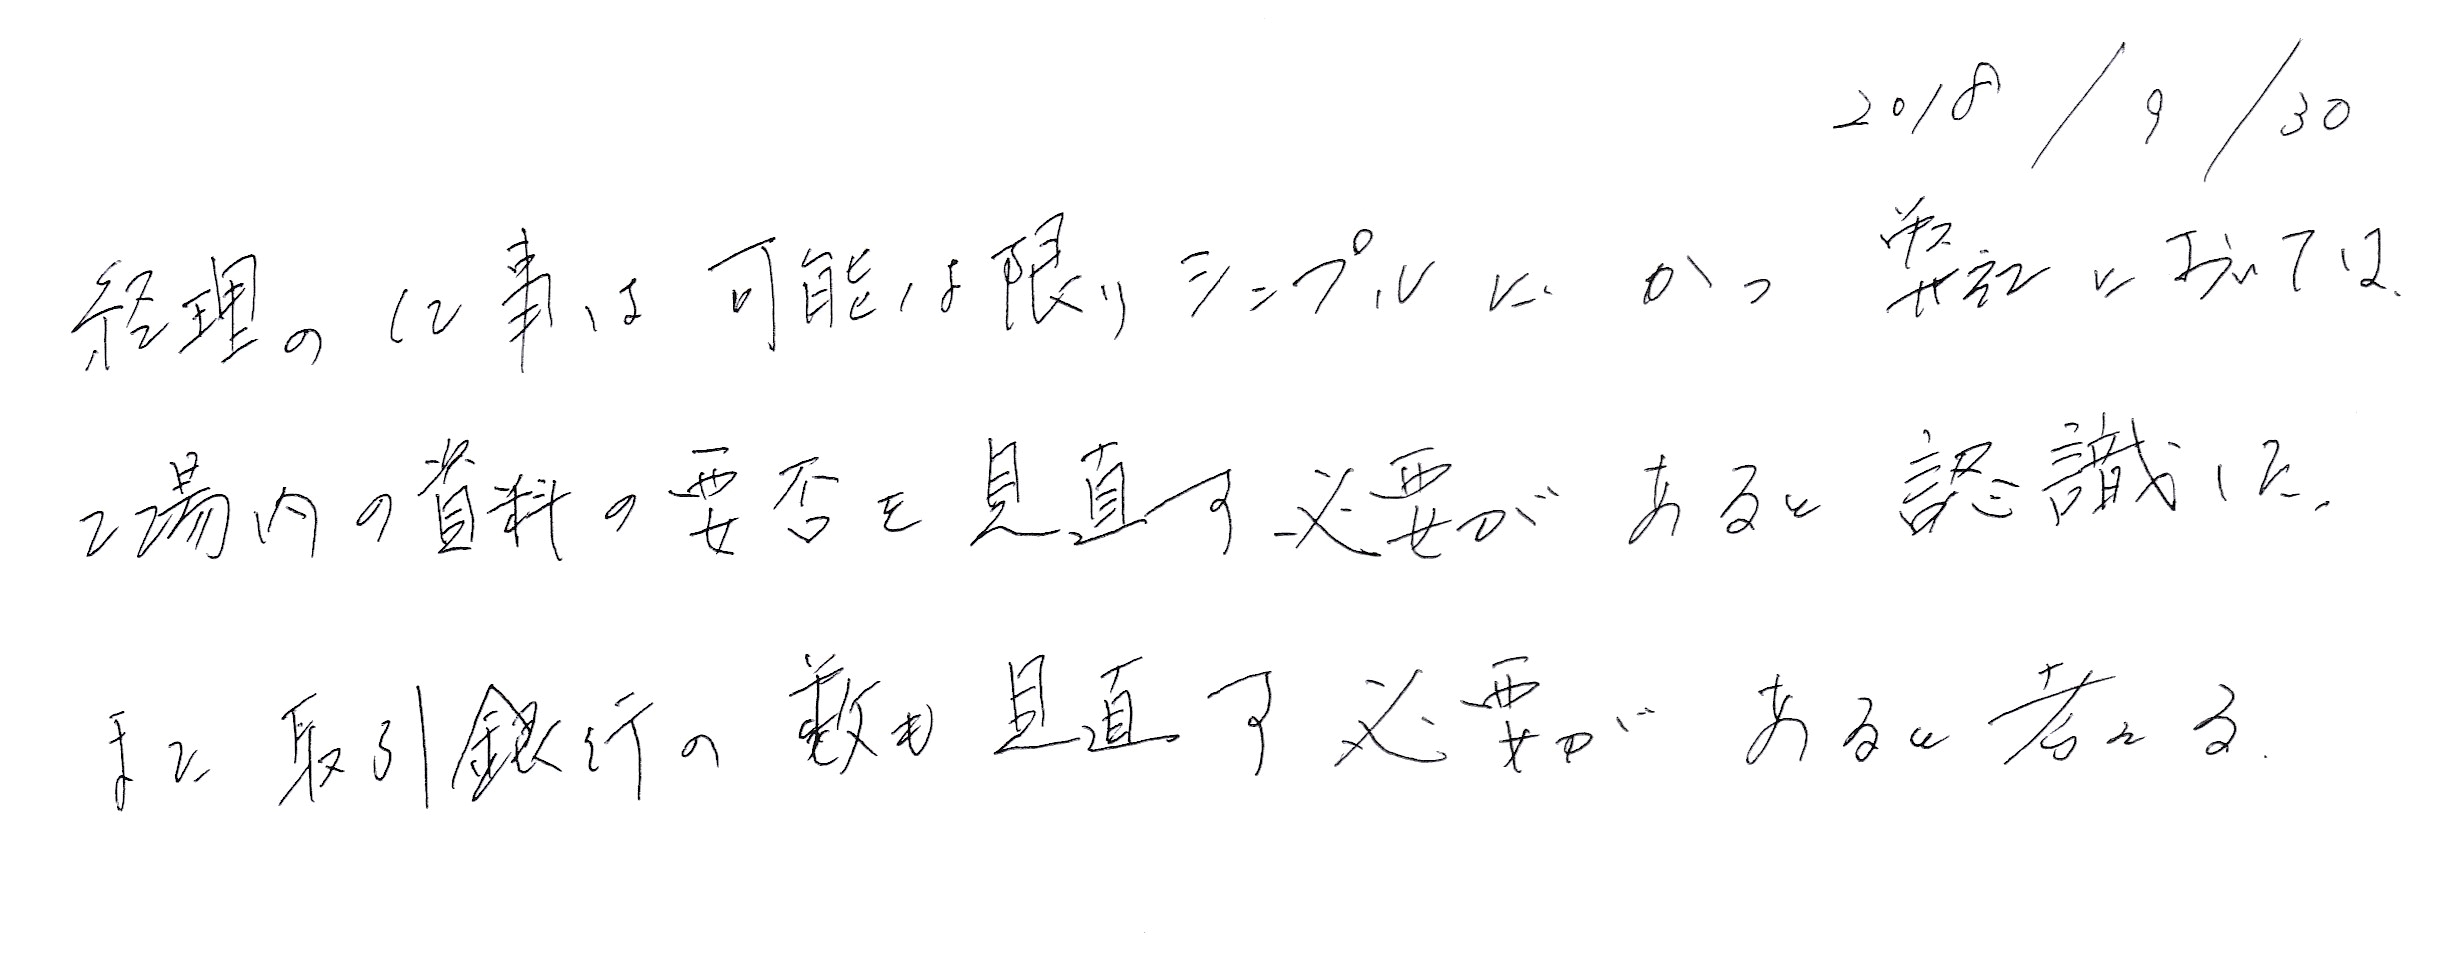 2018/9/30
経理の仕事は可能な限りシンプルに かつ 弊社においては、
工場内の資料の要否を見直す必要があると認識した。
また取引銀行の数も見直す必要があると考える。